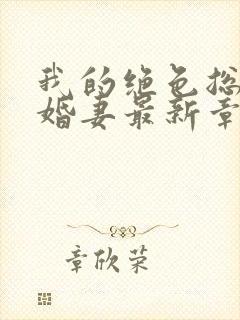 我的绝色总
婚妻最新章
章欣荣